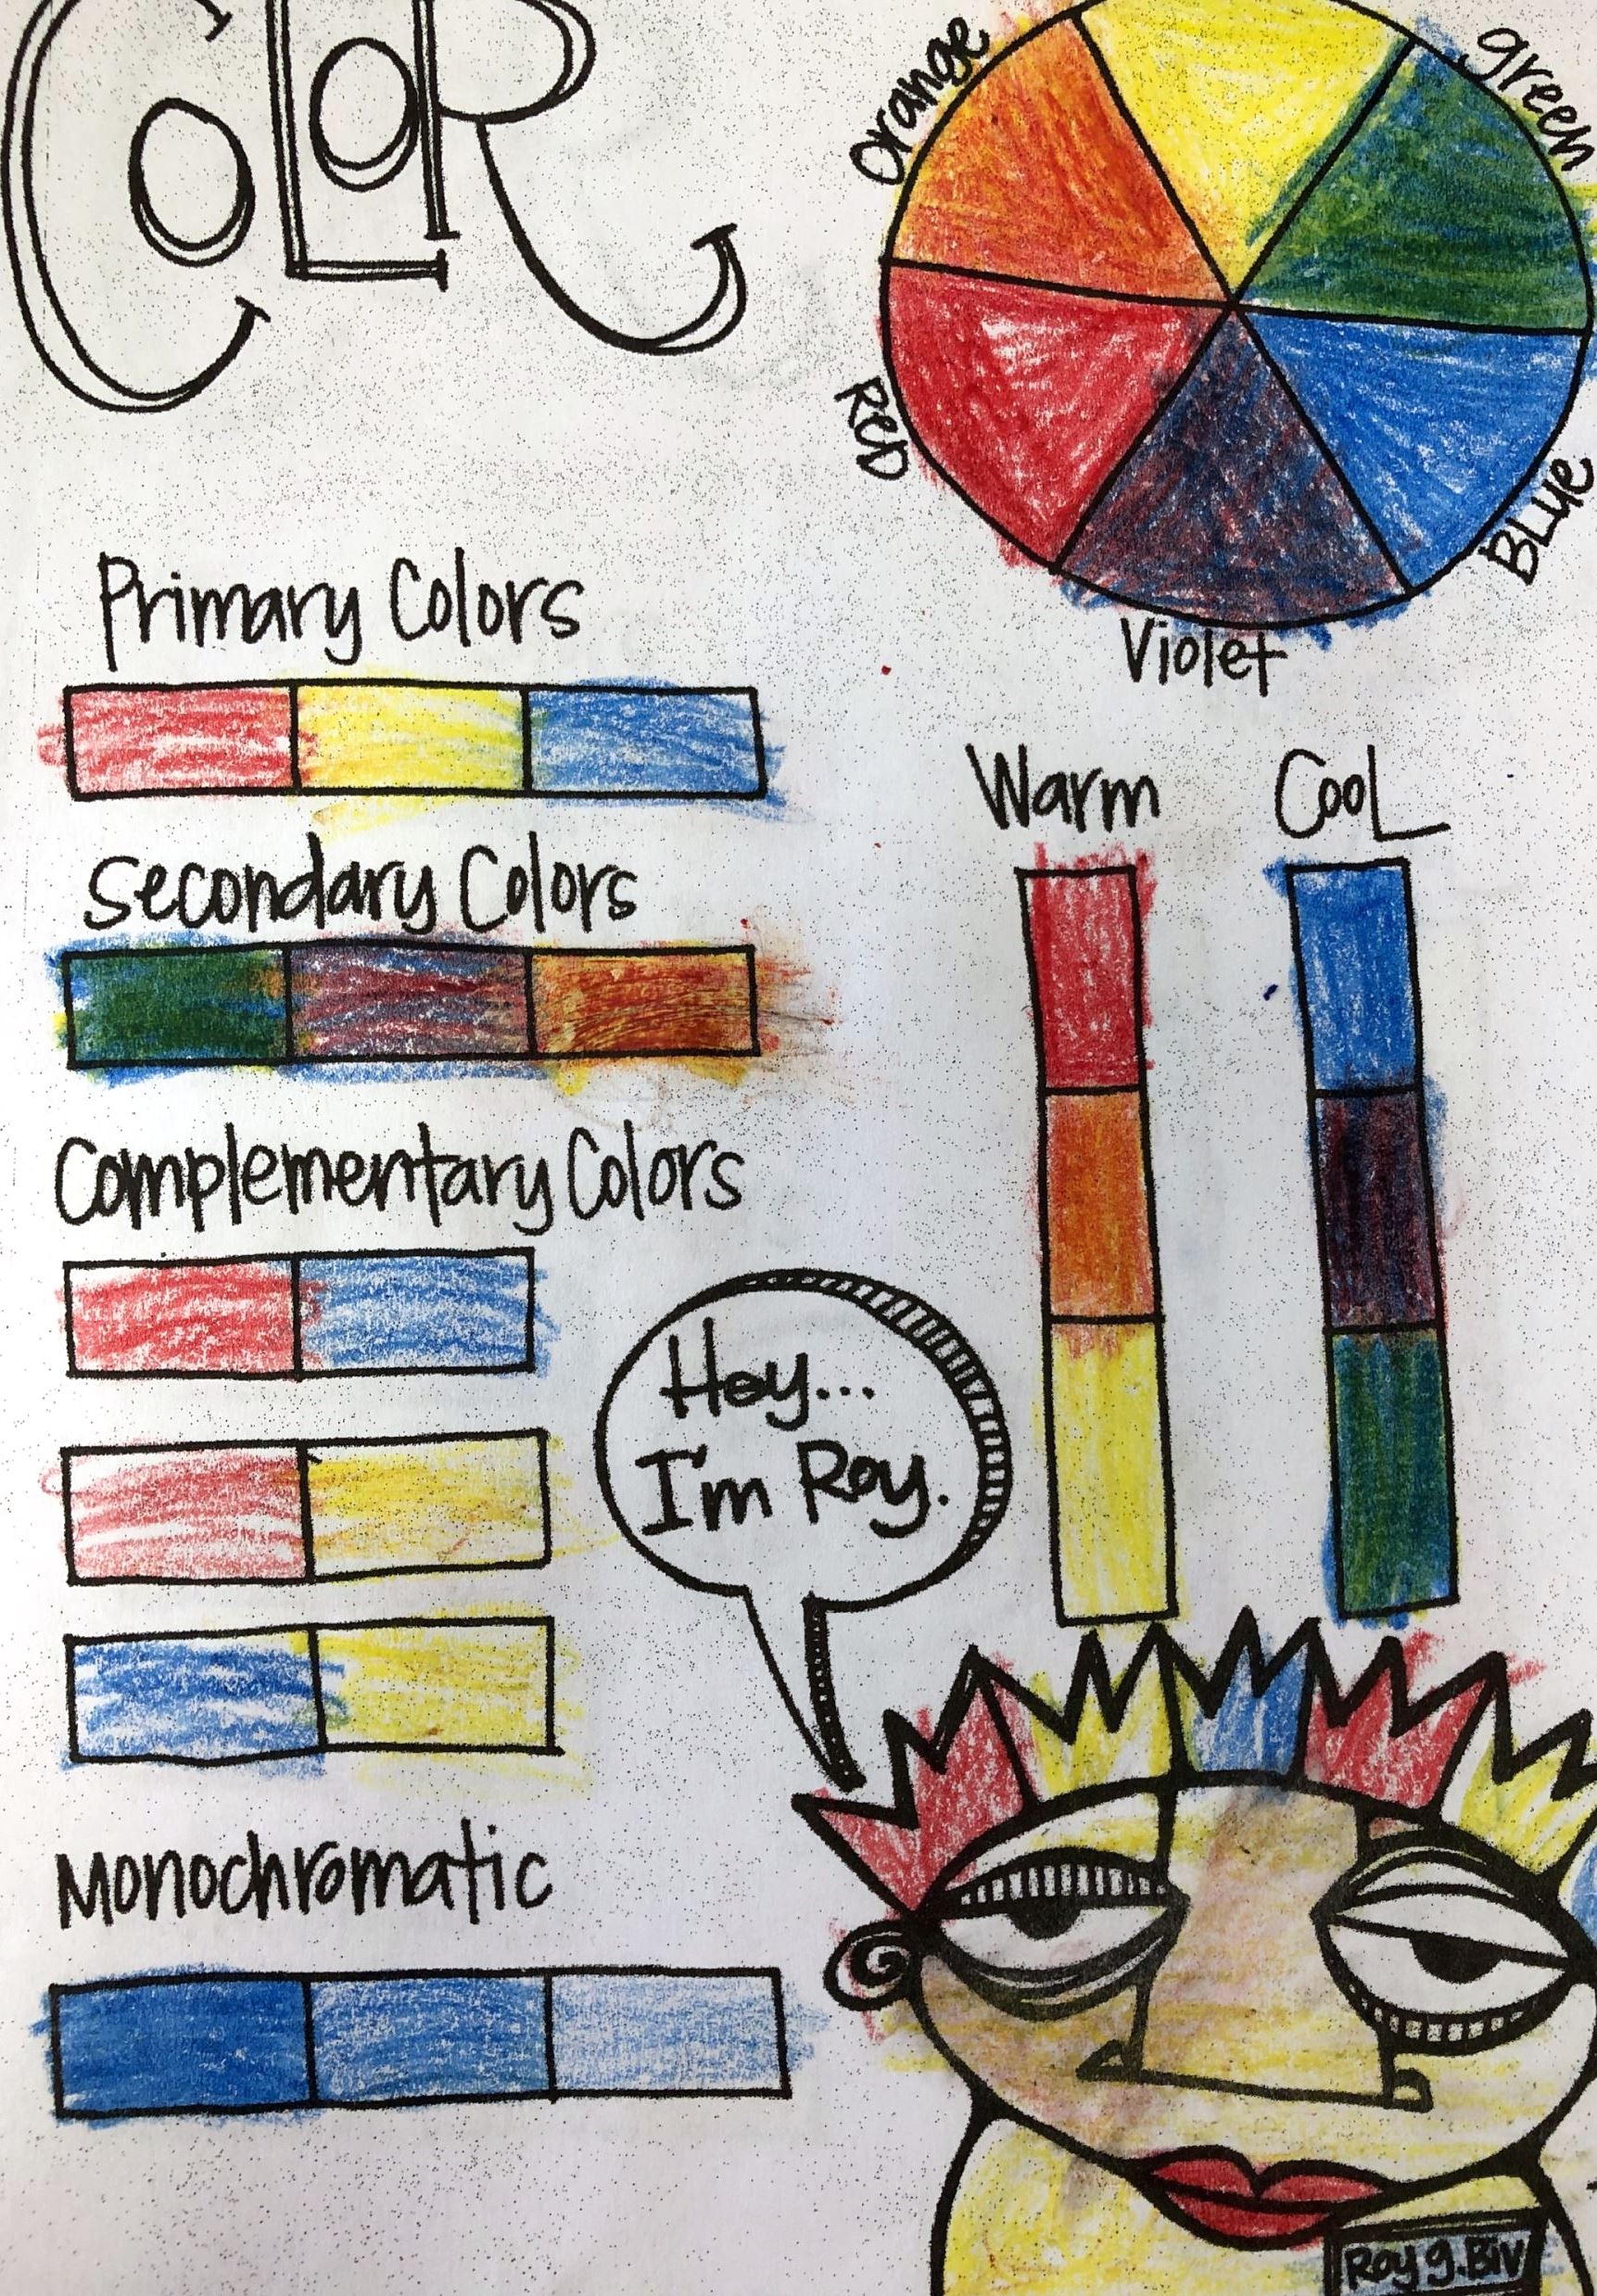 COLOR
Orange
green
RED
BLUE
Violet
Primary Colors
Warm
Cool
Secondary Colors
Complementary Colors
Hey...
I'm Roy.
Monochromatic
Roy g. Biv